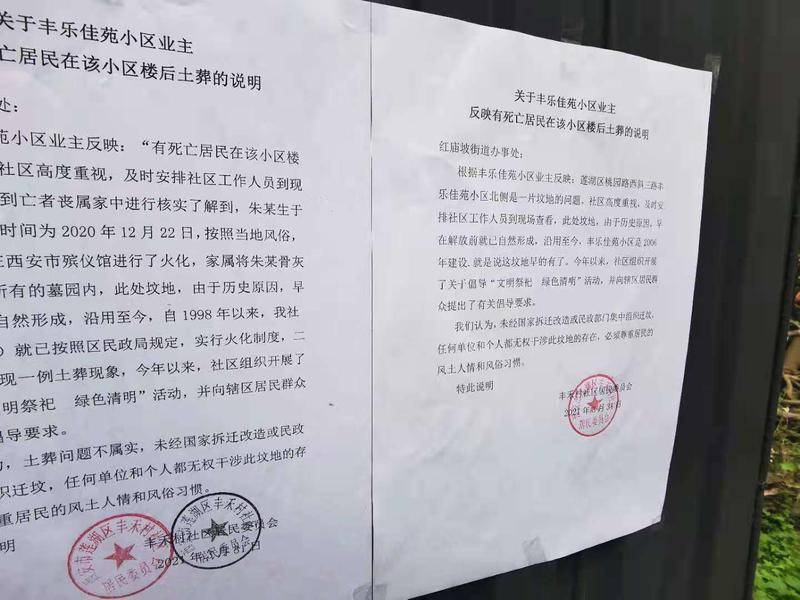 关于丰乐佳苑小区业主
亡居民在该小区楼后土葬的说明
处：
苑小区业主反映：“有死亡居民在该小区楼
社区高度重视，及时安排社区工作人员到现
到亡者丧属家中进行核实了解到，朱某生于
时间为 2020 年 12 月 22 日，按照当地风俗，
在西安市殡仪馆进行了火化，家属将朱某骨灰
所有的墓园内，此处坟地，由于历史原因，早
自然形成，沿用至今，自 1998 年以来，我社
）就已按照区民政局规定，实行火化制度，二
现一例土葬现象，今年以来，社区组织开展了
明祭祀　绿色清明”活动，并向辖区居民群众
倡导要求。
，土葬问题不属实，未经国家拆迁改造或民政
织迁坟，任何单位和个人都无权干涉此坟地的存
重居民的风土人情和风俗习惯。
明
丰禾村社区居民委员会
2021 年
西安市莲湖区丰禾村社
居民委员会
关于丰乐佳苑小区业主
反映有死亡居民在该小区楼后土葬的说明
红庙坡街道办事处：
根据丰乐佳苑小区业主反映：莲湖区桃园路西斜三路丰
乐佳苑小区北侧是一片坟地的问题，社区高度重视，及时安
排社区工作人员到现场查看，此处坟地，由于历史原因，早
在解放前就已自然形成，沿用至今，丰乐佳苑小区是 2006
年建设.就是说这坟地早的有了。今年以来，社区组织开展
了关于倡导“文明祭祀　绿色清明”活动，并向辖区居民群
众提出了有关倡导要求。
我们认为，未经国家拆迁改造或民政部门集中组织迁坟，
任何单位和个人都无权干涉此坟地的存在，必须尊重居民的
风土人情和风俗习惯。
特此说明
丰禾村社区居民委员会
2021 年
居民委员会